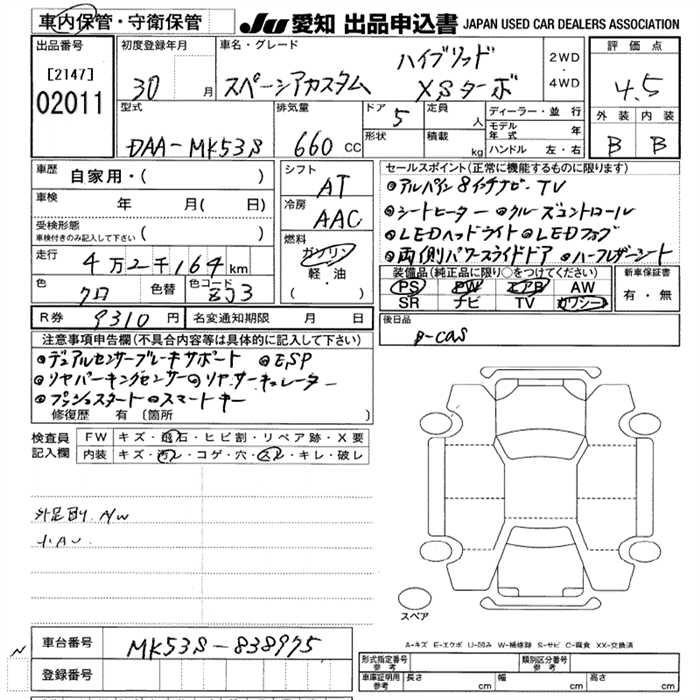 車内保管・守衛保管
JU 愛知 出品申込書 JAPAN USED CAR DEALERS ASSOCIATION
出品番号
[2147]
02011
初度登録年月
30 月
車名・グレード
ハイブリッド
スペーシアカスタム XSターボ
2WD
・
4WD
評価点
4.5
外装 内装
B B
型式
DAA-MK53S
排気量
660 CC
ドア 5
形状
定員 人
積載 kg
ディーラー・並行
モデル年式 年
ハンドル 左・右
車歴
自家用・( )
車検
年 月( 日)
受検形態
車検付きのみ記入して下さい ( )
走行
4万2千164 km
色
クロ
色替
色コード
ZJ3
シフト
AT
冷房
AAC
燃料
ガソリン
軽・油
( )
セールスポイント(正常に機能するものに限ります)
●アルパイン8インチナビ・TV
●シートヒーター ●クルーズコントロール
●LEDヘッドライト ●LEDフォグ
●両側パワースライドドア ●ハーフレザーシート
装備品(純正品に限り○をつけてください)
PS PW エアB AW
SR ナビ TV カワシート
新車保証書
有・無
R券 9310 円 名変通知期限 月 日
後日品
B-CAS
注意事項申告欄(不具合内容等は具体的に記入して下さい)
●デュアルセンサーブレーキサポート ●ESP
●リヤパーキングセンサー ●リヤサーキュレーター
●プッシュスタート ●スマートキー
修復歴 有 (箇所 )
検査員記入欄
FW キズ・飛石・ヒビ割・リペア跡・X要
内装 キズ・汚レ・コゲ・穴・スレ・キレ・破レ
スペア
A-キズ E-エクボ U-凹み W-補修跡 S-サビ C-腐食 XX-交換済
車台番号 MK53S-838975
登録番号
N
形式指定番号
参考
類別区分番号
参考
車庫証明用
参考
長さ cm
幅 cm
高さ cm